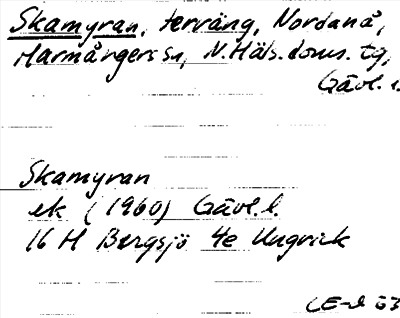 Skamyran, terräng, Nordanå,
Harmångers sn, N. Häls. doms. tg,
Gävl. l.
Skamyran
ek (1960) Gävl. l.
16 H Bergsjö 4e Ungvick
63